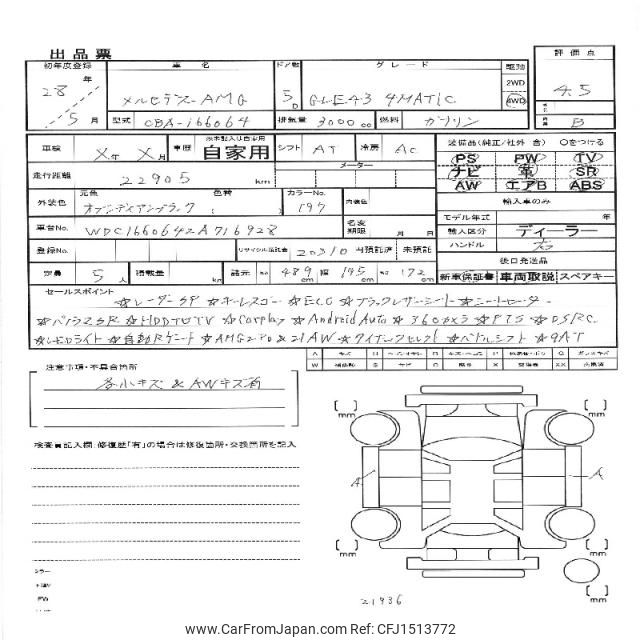 出品票
初年度登録 車名 ドア数 グレード 駆動 評価点
28年 メルセデスAMG 5D GLE43 4MATIC 2WD 4WD 4.5
5月 型式 CBA-166064 排気量 3000 cc 燃料 ガソリン B
車検 X年 X月 車歴 自家用 シフト AT 冷房 AC 装備品(純正/社外 含) ○をつける
走行距離 22905 km メーター
PS PW TV
ナビ 革 SR
AW エアB ABS
外装色 元色 オブシディアンブラック 色替 カラーNo. 197 内装色
輸入車のみ
車台No. WDC1660642A716928 名変期限 月 日
モデル年式 年
輸入区分 ディーラー
登録No. リサイクル預託金 20310 預託済 未預託
ハンドル 右
定員 5人 積載量 kg 諸元 長 489 幅 195 高 172 cm
後日発送品
新車保証書 車両取説 スペアキー
セールスポイント
☆レーダーSP ☆キーレスゴー ☆ECO ☆ブラックレザーシート ☆シートヒーター
☆パノラマSR ☆HDDナビTV ☆Carplay ☆Android Auto ☆360°カメラ ☆PTS ☆DSRC
☆LEDライト ☆自動Rゲート ☆AMGエアロ&21AW ☆ダイナミックセレクト ☆パドルシフト ☆9AT
注意事項・不具合箇所
各小キズ & AWキズ有
検査員記入欄:修復歴「有」の場合は修復箇所・交換箇所を記入
mm mm
A A
mm mm
mm
21936
www.CarFromJapan.com RefId: CFJ1513772